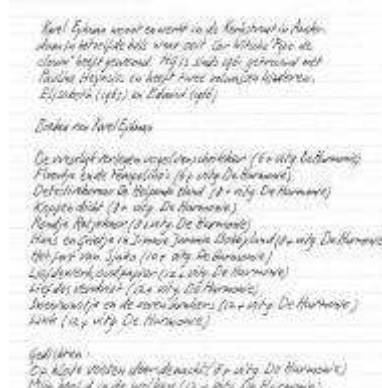 Karel Eykman woont en werkt in de Kerkstraat in Amster-
dam in hetzelfde huis waar ooit Cor Witschge "Pipo de
clown" heeft gewoond. Hij is sinds 1961 getrouwd met
Pauline en heeft twee volwassen kinderen,
Elisabeth (1965) en Eduard (1968)
Boeken van Karel Eykman
De vreselijk verlegen vogelverschrikker (6+ uitg. De Harmonie)
Floortje en de (6+ uitg. De Harmonie)
Detectivebureau De Helpende Hand (8+ uitg. De Harmonie)
Koppen dicht (8+ uitg. De Harmonie)
(8+ uitg. De Harmonie)
Hans en Grietje in (8+ uitg. De Harmonie)
Het fort van Sjako (10+ uitg. De Harmonie)
Liefdewerk, oud papier (12+ uitg. De Harmonie)
Liefdesverdriet (12+ uitg. De Harmonie)
Sneeuwwitje en de zeven bunkers (12+ uitg. De Harmonie)
(12+ uitg. De Harmonie)
Gedichten:
Op blote voeten door de nacht (8+ uitg. De Harmonie)
Mijn hoofd in de wolken (12+ uitg. De Harmonie)